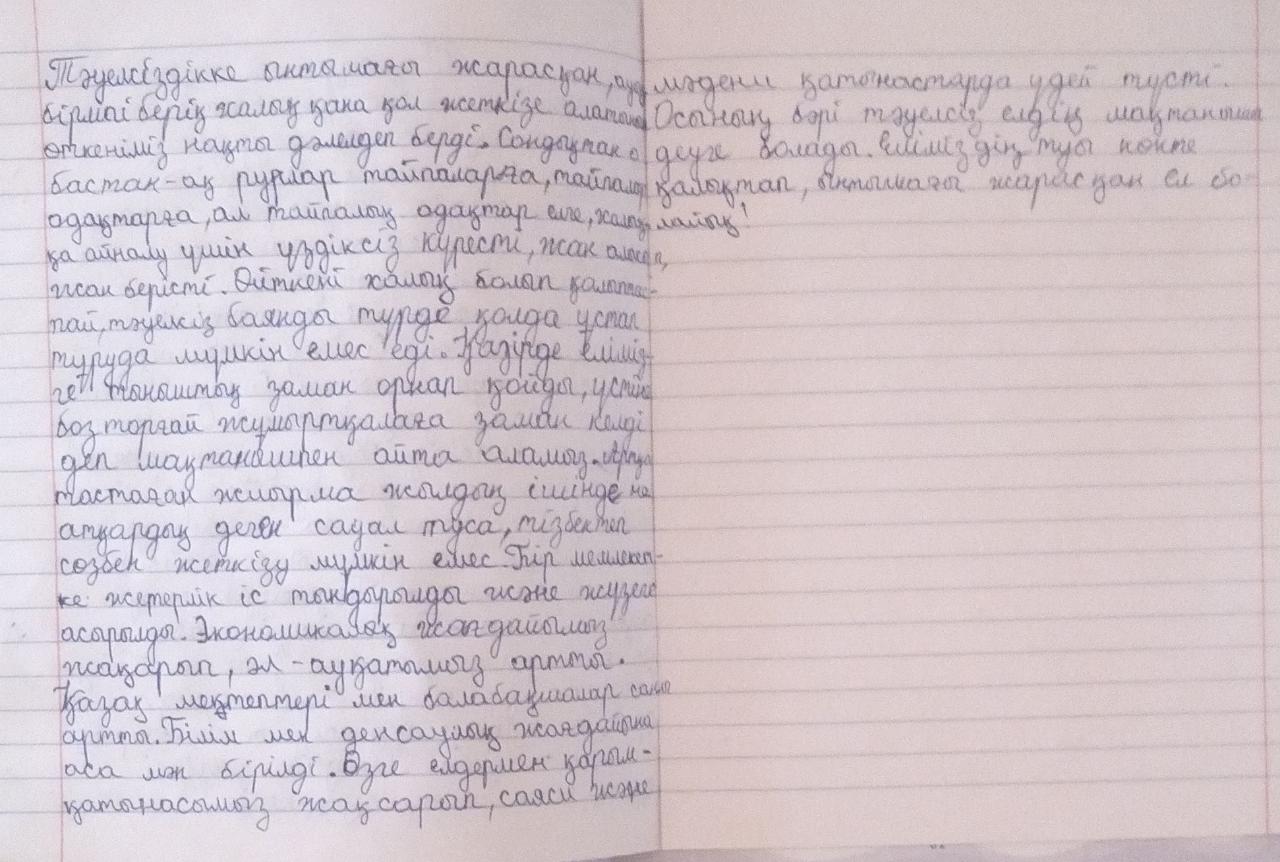 Тәуелсіздікке ынтымағы жарасқан, ауыз
бірлігі берік халық қана қол жеткізе алатынын
өткеніміз нақты дәлелдеп берді. Сондықтан о
бастан-ақ рулар тайпаларға, тайпалар
одақтарға, ал тайпалық одақтар елге, халық
қа айналу үшін үздіксіз күресті, жан алысып,
жан берісті. Өйткені халық болып қалыптас-
пай, тәуелсіз баянды түрде қолда ұстап
тұруда мүмкін емес еді. Қазірде еліміз-
ге тыныштық заман орнап қойды, үстіне
бозторғай жұмыртқалаға заман келді
деп мақтанышпен айта аламыз. Артқа
тастаған жиырма жылдың ішінде не
атқардық деген сауал туса, тізбектеп
сөзбен жеткізу мүмкін емес. Бір мемлекет-
ке жетерлік іс тындырылды және жүзеге
асырылды. Экономикалық жағдайымыз
жақарып, әл-ауқатымыз артты.
Қазақ мектептері мен балабақшалар саны
артты. Білім мен денсаулық жағдайына
аса мән бірілді. Өзге елдермен қарым-
қатынасымыз жақсарып, саяси және
мәдени қатынастарда үдей түсті.
Осының бәрі тәуелсіз елдің мақтанышы
деуге болады. Еліміздің туы көкте
қалықтап, ынтымағы жарасқан ел бо-
лайық!